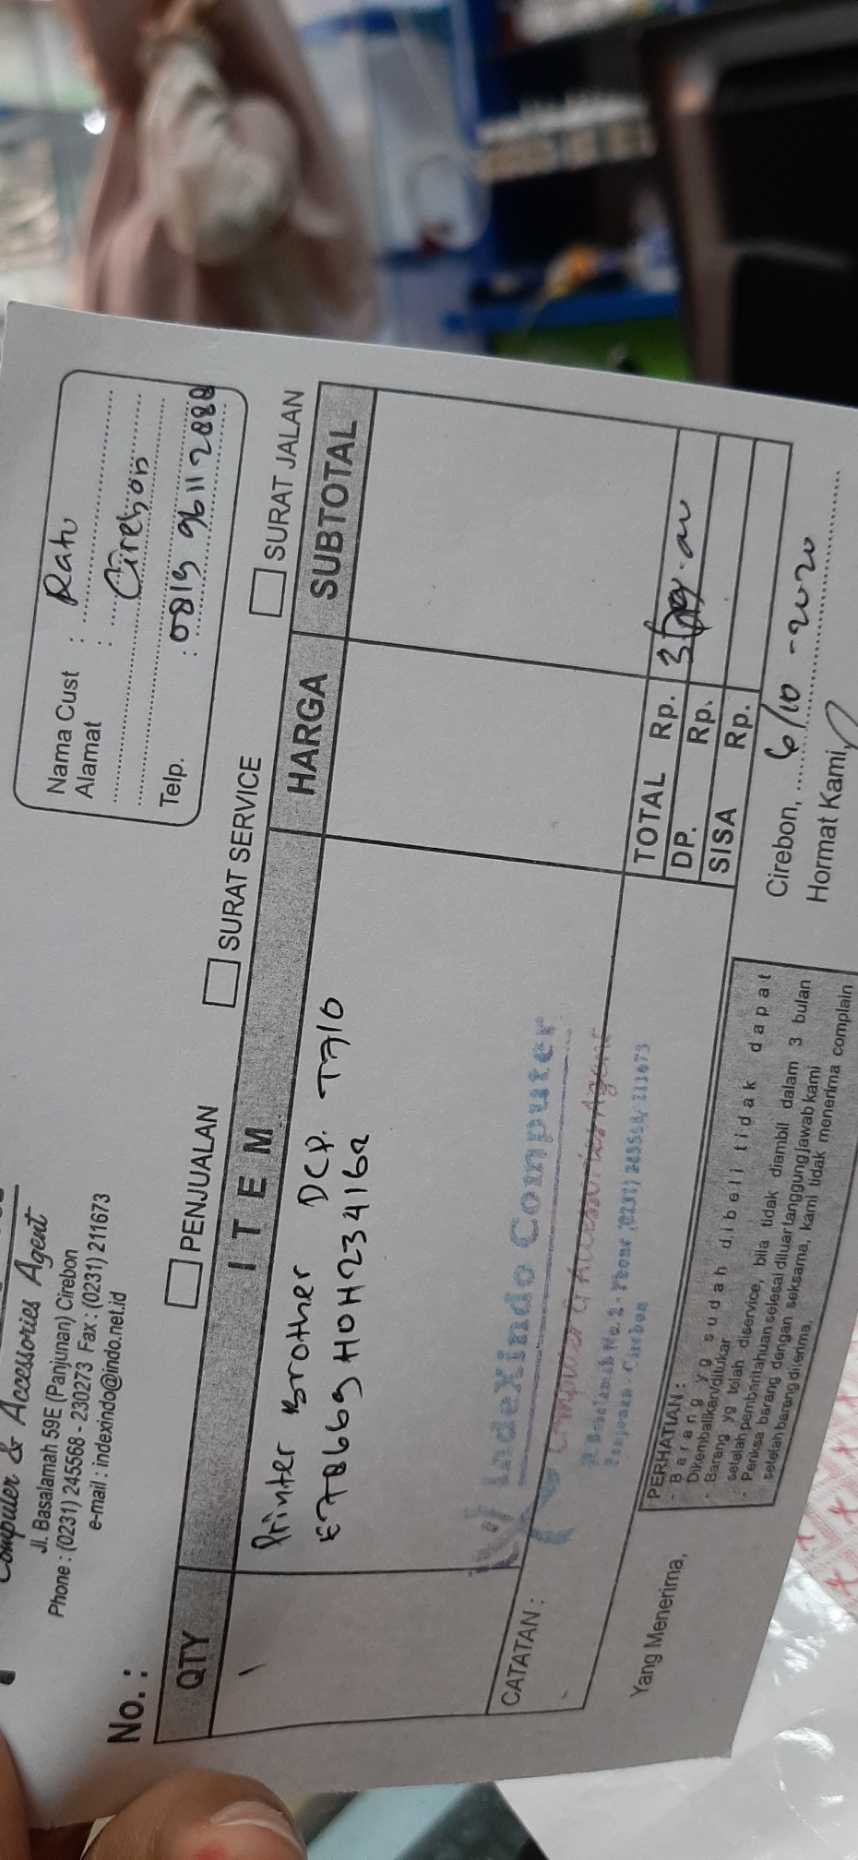 Computer & Accessories Agent
Jl. Basalamah 59E (Panjunan) Cirebon
Phone : (0231) 245568 - 230273 Fax : (0231) 211673
e-mail : indexindo@indo.net.id
Nama Cust : Ratu
Alamat : Cirebon
Telp. : 0819 9611 2888
No. :
PENJUALAN
SURAT SERVICE
SURAT JALAN
QTY ITEM HARGA SUBTOTAL
1 Printer Brother DCP. T710
E78669H0H234162
CATATAN :
Indexindo Computer
Computer & Accessories Agent
Jl. Basalamah No. 2 - Phone (0231) 245568, 211673
Panjunan - Cirebon
TOTAL Rp.
DP. Rp.
SISA Rp.
Yang Menerima,
PERHATIAN :
- Barang yg sudah dibeli tidak dapat
Dikembalikan/ditukar
- Barang yg telah diservice, bila tidak diambil dalam 3 bulan
setelah pemberitahuan selesai diluar tanggung jawab kami
- Periksa barang dengan seksama, kami tidak menerima complain
setelah barang diterima,
Cirebon, 6/10 - 2020
Hormat Kami,